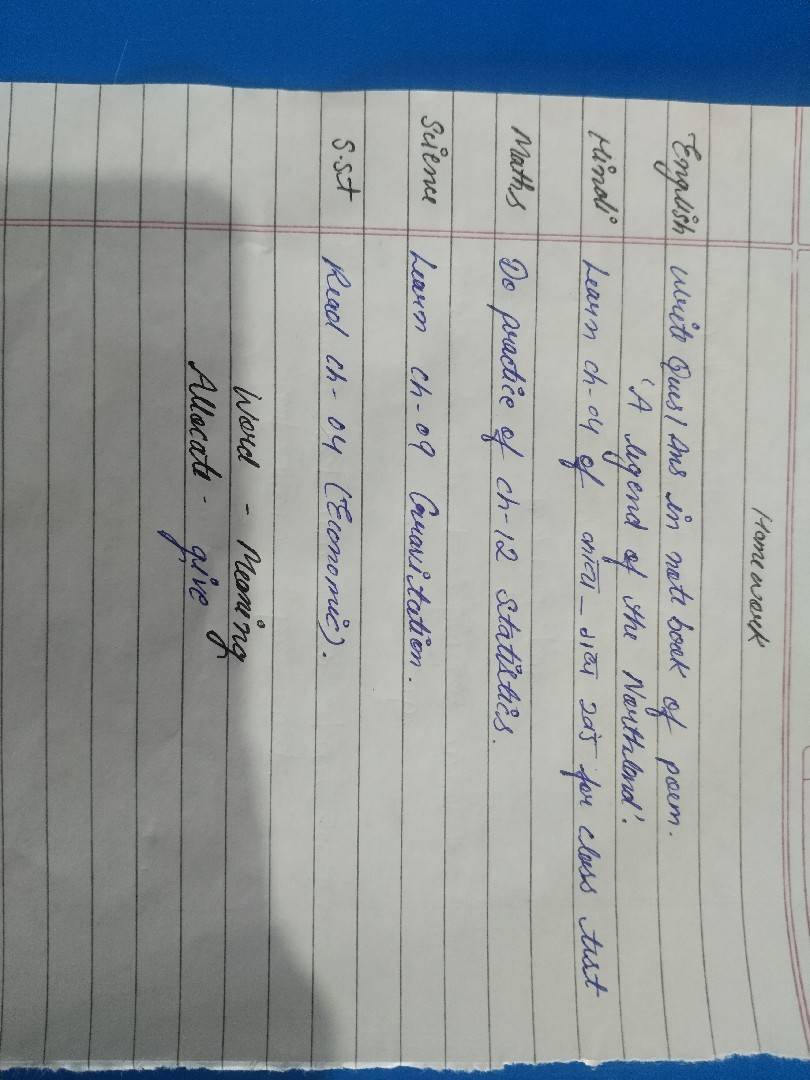 Home work
English Write Ques/Ans in note book of poem.
'A legend of the Northland'.
Hindi Learn ch-04 of for class test
Maths Do practice of ch-12 Statistics.
Science Learn ch-09 Gravitation.
S.St Read ch-04 (Economic).
Word - Meaning
Allocate - give